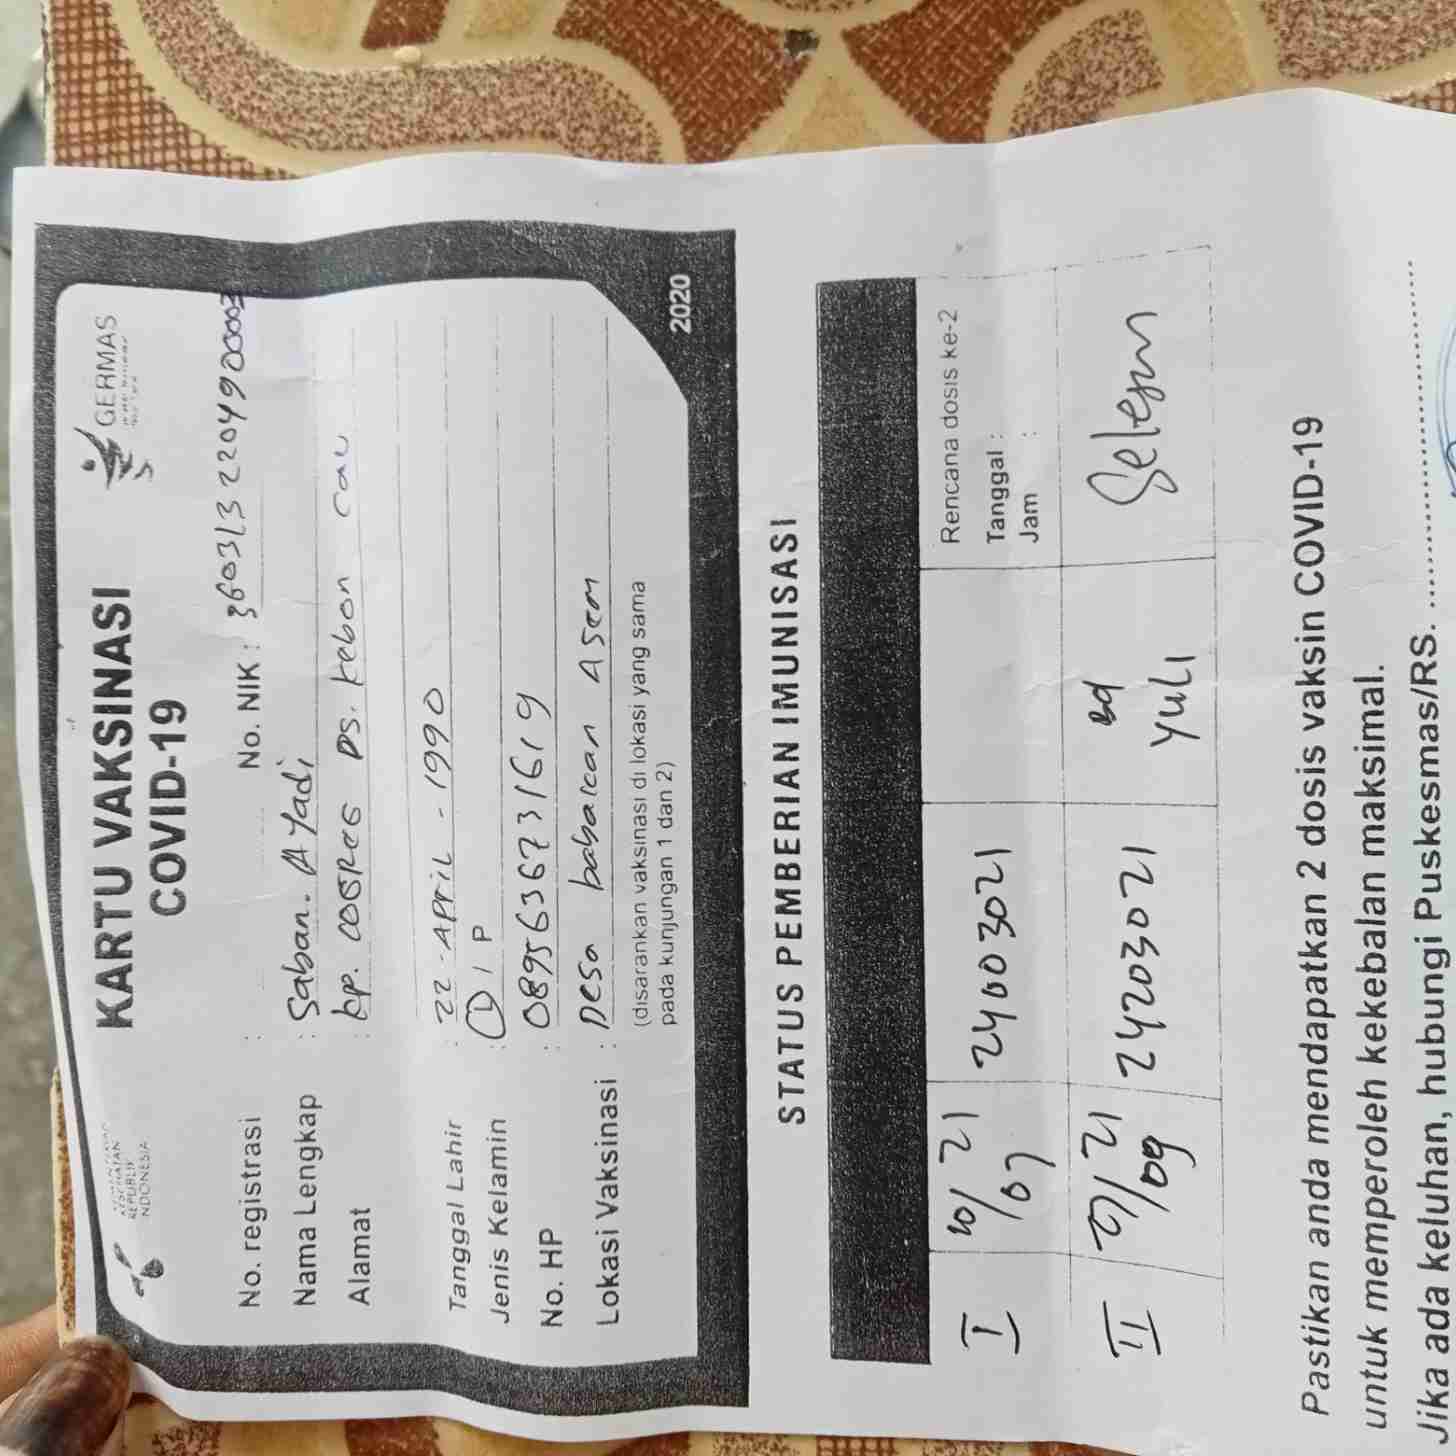 KEMENTERIAN
KESEHATAN
REPUBLIK
INDONESIA
KARTU VAKSINASI
COVID-19
GERMAS
No. registrasi :
No. NIK : 3603132204900003
Nama Lengkap : Saban. A Yadi
Alamat : kp. Ps. kebon cau
Tanggal Lahir : 22 - APRIL - 1990
Jenis Kelamin : L / P
No. HP : 0895636731619
Lokasi Vaksinasi : Desa babakan Asem
(disarankan vaksinasi di lokasi yang sama
pada kunjungan 1 dan 2)
2020
STATUS PEMBERIAN IMUNISASI
I 10/07 21 24003021 Rencana dosis ke-2
Tanggal :
Jam :
II 21/09 21 24203021 YULI Selesai
Pastikan anda mendapatkan 2 dosis vaksin COVID-19
untuk memperoleh kekebalan maksimal.
Jika ada keluhan, hubungi Puskesmas/RS. ........................